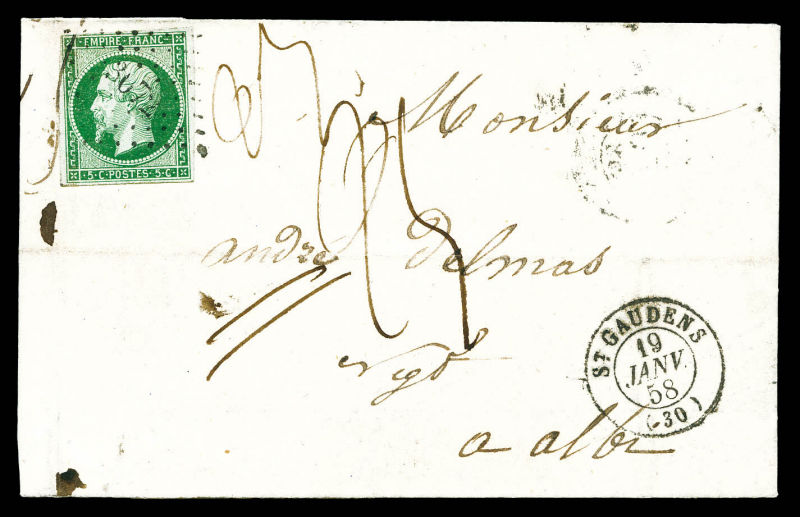 EMPIRE FRANC-
5·C·POSTES·5·C·
à Monsieur
andre Delmas
Negt
a albi
ST GAUDENS
19
JANV.
58
(30)